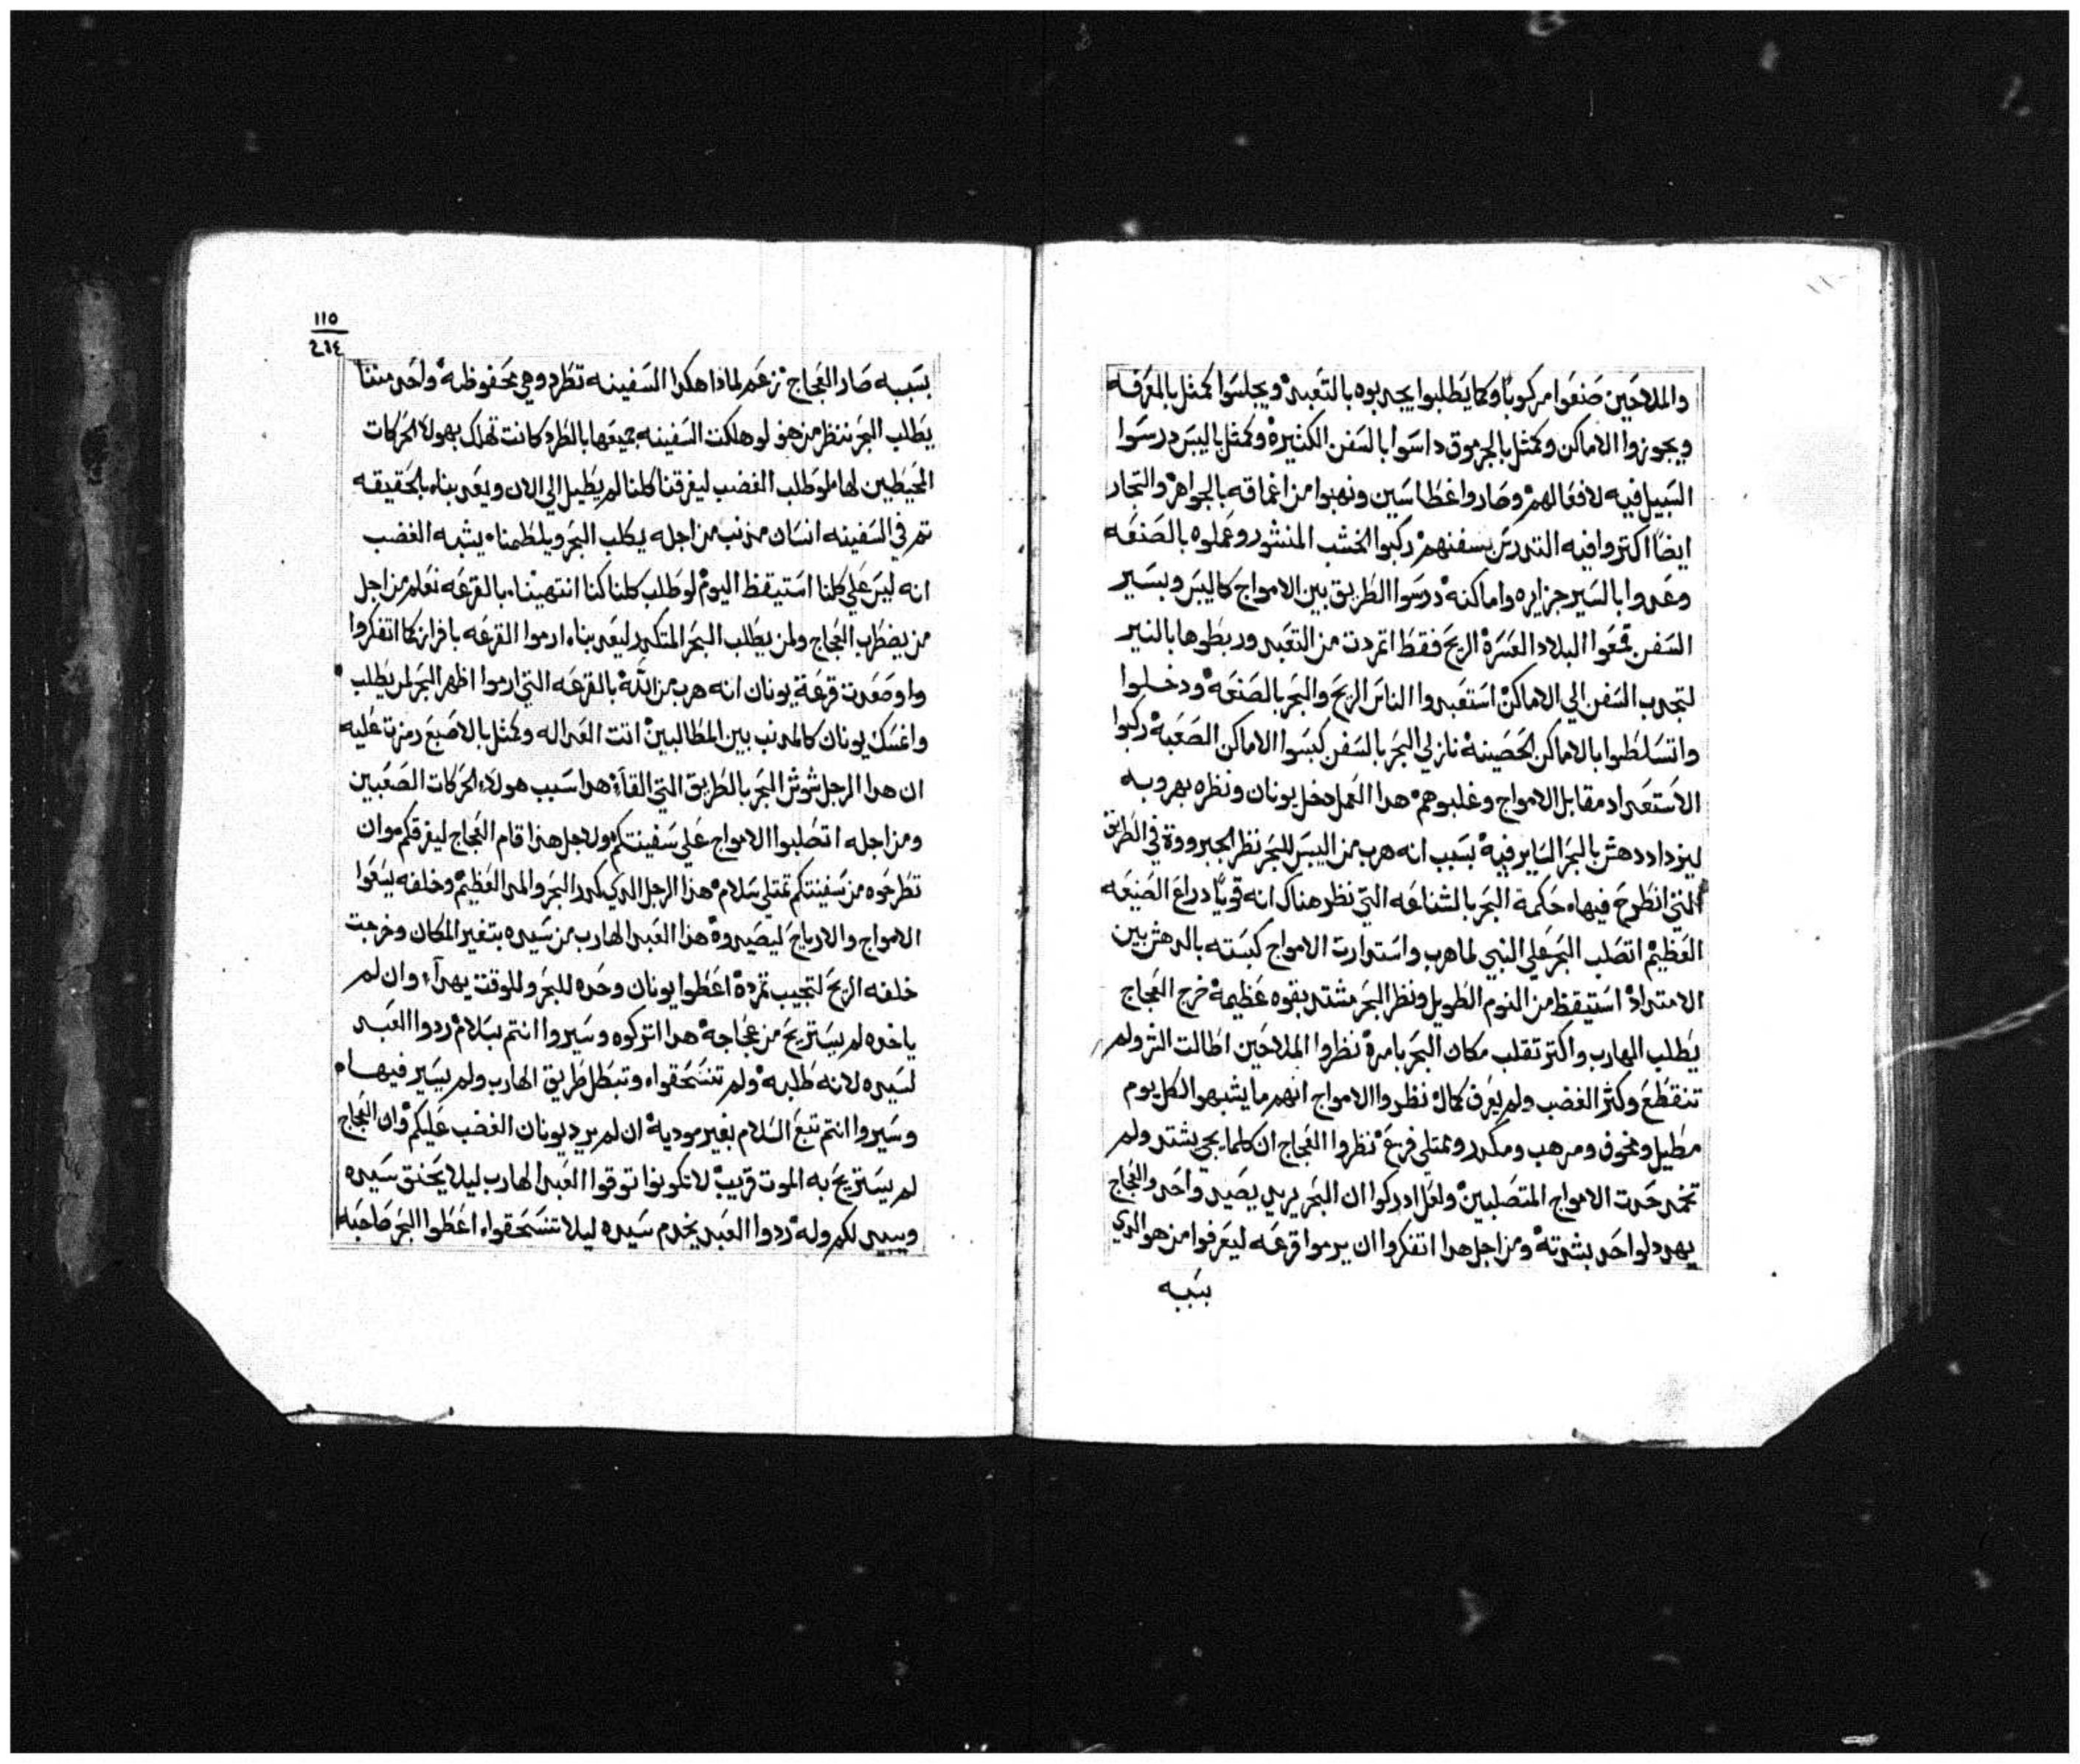 والملاحين صنعوا مركوباً وكما يطلبوا يجدبوه بالتعبد ويجلسوا كمثل بالمزفه
ويجوزوا الاماكن وكمثل بالجرموق داسوا بالسفن الكثيرة وكمثل باليبس درسوا
السبيل فيه لافعالهم وصاروا غطاسين ونهبوا من اغماقه بالجواهر والتجار
ايضاً اكتروا فيه التدريس بسفنهم ركبوا الخشب المنشور وعملوه بالصنعه
وعدوا بالسير جزايره واماكنه درسوا الطريق بين الامواج كاليبس وبسير
السفن قمعوا البلاد العسرة الريح فقط اتمردت من التعبد وربطوها بالنير
لتجدب السفن الي الاماكن استعبدوا الناس الريح والبحر بالصنعه ودخلوا
واتسلطوا بالاماكن الحصينة نازلي البحر بالسفن كبسوا الاماكن الصعبة ركبوا
الاستعداد مقابل الامواج وغلبوهم هدا العمل دخل يونان ونظره بهروبه
ليزداد دهش بالبحر الساير فيه بسبب انه هرب من اليبس للبحر نظر الجبرووة في الطريق
التي انطرح فيها حكمة البحر بالشناعه التي نظر هناك انه قوياً دراع الصنيعه
العظيم اتصلب البحر علي النبي لما هرب واستدارت الامواج كبسته بالدهش بين
الامتداد استيقظ من النوم الطويل ونظر البحر مشتد بقوه عظيمة خرج العجاج
يطلب الهارب واكتر تقلب مكان البحر بامرة نظروا الملاحين اطالت الشر ولم
تنقطع وكثر الغضب ولم يعرف كمال نظروا الامواج انهم ما يشبهوا لكل يوم
مطيل ومخوف ومرهب ومكدر وممتلي فزع نظروا العجاج ان كلما يجي يشتد ولم
تخمد حدت الامواج المتصلبين ولعل ادركوا ان البحر يريد يصيد واحد والعجاج
يهدد لواحد بشدته ومن اجل هدا اتفكروا ان يرموا قرعه ليعرفوا من هو الدي
بسببه
١١٥
بسببه صار العجاج زعم لماذا هكدا السفينه تطرد وهي محفوظة واحد مننا
يطلب البحر ننظر من هو لو هلكت السفينه جميعها بالطرد كانت تهلك بهولاء الحركات
المحيطين لها لو طلب الغضب ليغرقنا كلنا لم يطيل الي الان ويعدبنا بالحقيقه
تم في السفينه انسان مدنب من اجله يكلب البحر ويلطمنا يشبه الغضب
انه ليس علي كلنا استيقظ اليوم لو طلب كلنا كنا انتهينا بالقرعه نعلم من اجل
من يضطرب العجاج ولمن يطلب البحر المتكدر ليعدبنا ارموا القرعه بافراز كما اتفكروا
واوصعدت قرعة يونان انه هرب من الله بالقرعه التي ارموا اظهر البحر لمن يطلب
وانمسك يونان كالمدنب بين المطالبين انت العداله وكمثل بالاصبع رمزت عليه
ان هدا الرجل شوش البحر بالطريق التي القاه هدا سبب هولاء الحركات الصعبين
ومن اجله اتصلبوا الامواج علي سفينتكم ولاجل هذا قام العجاج ليغرقكم وان
تطرحوه من سفينتكم تمتلي سلام هذا الرجل الدي كدر البحر والمد العظيم وخلفه يسعوا
الامواج والارياح ليصيدوة هذا العبد الهارب من سيده بتغير المكان وخرجت
خلفه الريح لتجيب تمردة اعطوا يونان وحده للبحر وللوقت يهدآ وان لم
ياخده لم يستريح من عجاجة هدا اتركوه وسيروا انتم بسلام ردوا العبد
لسيده لانه طلبه ولم تنسحقوا وتبطل طريق الهارب ولم يسير فيها
وسيروا انتم تبع السلام بغير مودية ان لم يريد يونان الغضب عليكم وان العجاج
لم يستريح به الموت قريب لا تكونوا توقوا العبد الهارب ليلا يحنق سيده
ويبيد لكم وله ردوا العبد يخدم سيده ليلا تنسحقوا اعطوا البحر صاحبه